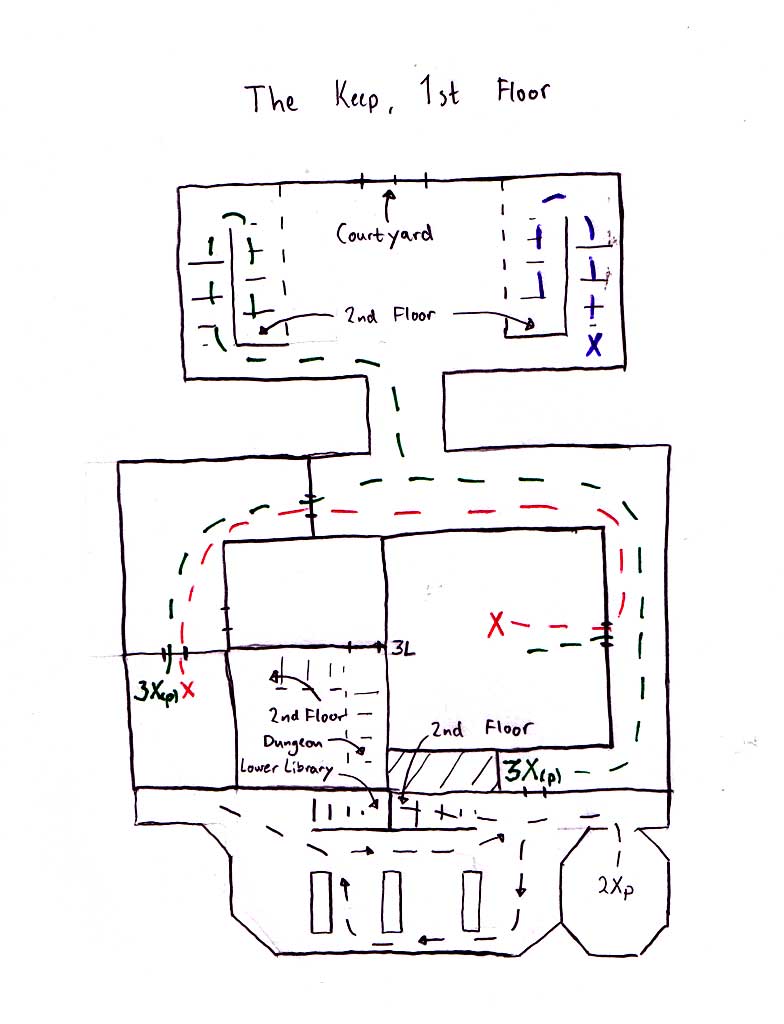 The Keep, 1st Floor
Courtyard
2nd Floor
X
X
3L
3X(p) X
2nd Floor
2nd Floor
Dungeon
Lower Library
3X(p)
2Xp